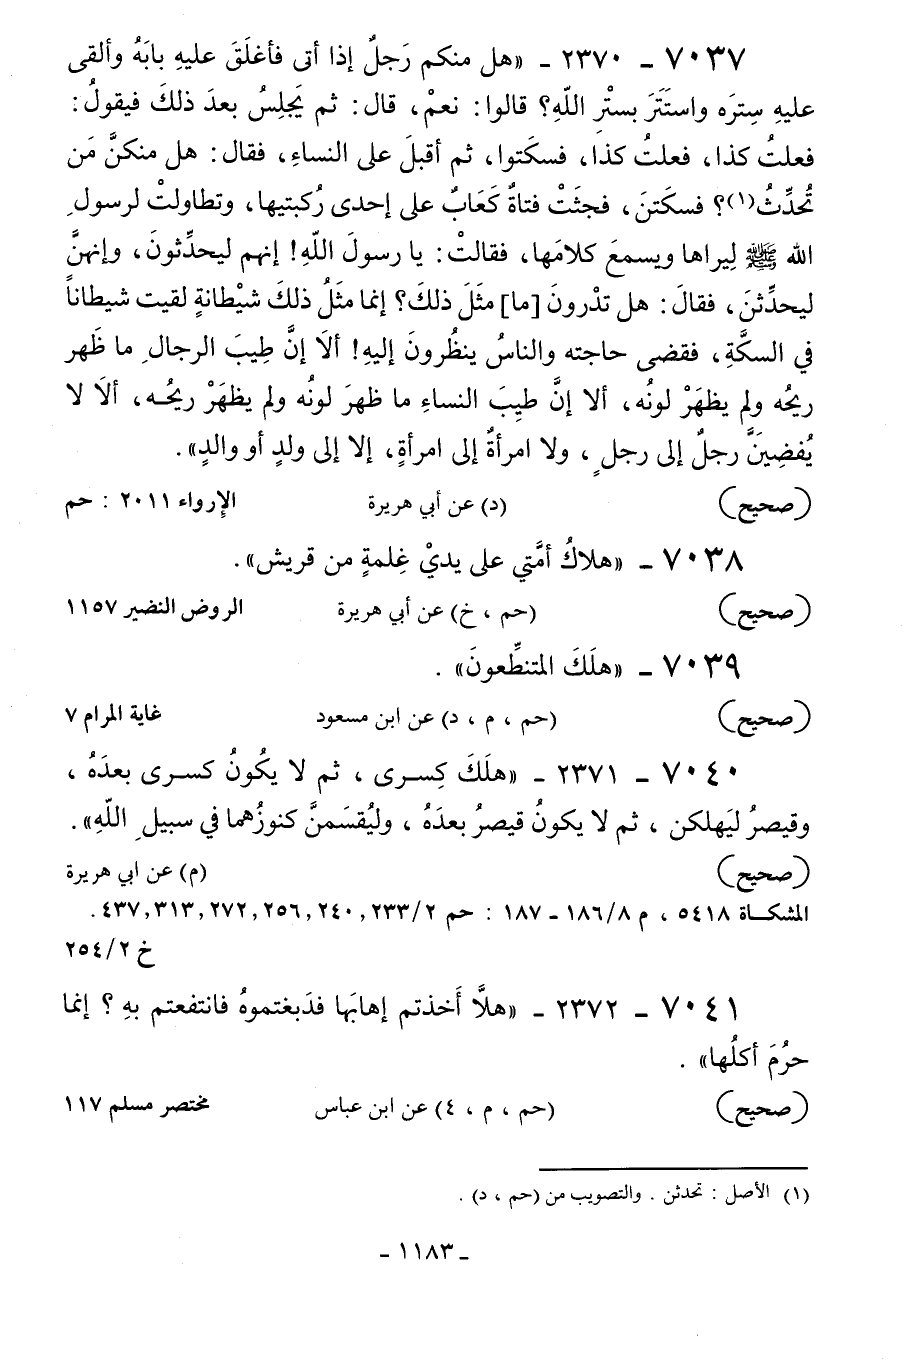 ٧٠٣٧ ـ ٢٣٧٠ ـ «هل منكم رَجلٌ إذا أتى فأغلَقَ عليهِ بابَهُ وألقى
عليهِ سِترَه واستَتَرَ بستْرِ اللّهِ؟ قالوا: نعمْ، قال: ثم يَجلِسُ بعدَ ذلكَ فيقولُ:
فعلتُ كذا، فعلتُ كذا، فسكَتوا، ثم أقبلَ على النساءِ، فقال: هل منكنَّ مَن
تُحدِّثُ(١)؟ فسكَتنَ، فجثَتْ فتاةٌ كَعَابٌ على إحدى رُكبتيها، وتطاولتْ لرسولِ
الله ﷺ لِيراها ويسمعَ كلامَها، فقالتْ: يا رسولَ اللّهِ! إنهم ليحدِّثونَ، وإنهنَّ
ليحدِّثنَ، فقالَ: هل تدْرونَ [ما] مثَلَ ذلكَ؟ إنما مثَلُ ذلكَ شيْطانةٍ لقيت شيطاناً
في السكَّةِ، فقضى حاجته والناسُ ينظُرونَ إليهِ! ألَا إنَّ طِيبَ الرجالِ ما ظَهر
ريحُه ولم يظهَرْ لونُه، ألا إنَّ طيِبَ النساءِ ما ظهرَ لونُه ولم يظهَرْ ريحُـه، ألَا لا
يُفضِينَّ رجلٌ إلى رجلٍ، ولا امرأةٌ إلى امرأةٍ، إلا إلى ولدٍ أو والدٍ».
(صحيح) (د) عن أبي هريرة الإرواء ٢٠١١ : حم
٧٠٣٨ ـ «هلاكُ أمَّتي على يديْ غِلمةٍ من قريش».
(صحيح) (حم ، خ) عن أبي هريرة الروض النضير ١١٥٧
٧٠٣٩ ـ «هلَكَ المتنطِّعونَ» .
(صحيح) (حم ، م ، د) عن ابن مسعود غاية المرام ٧
٧٠٤٠ ـ ٢٣٧١ ـ «هلَكَ كِسرى ، ثم لا يكُونُ كسـرى بعدَهُ ،
وقيصرُ ليَهلكن ، ثم لا يكونُ قيصرُ بعدَهُ ، وليُقسَمنَّ كنوزُهما في سبيلِ اللّهِ».
(صحيح) (م) عن ابي هريرة
المشكـاة ٥٤١٨ ، م ١٨٦/٨ ـ ١٨٧ : حم ٢٣٣/٢, ٢٤٠, ٢٥٦, ٢٧٢, ٣١٣, ٤٣٧.
خ ٢٥٤/٢
٧٠٤١ ـ ٢٣٧٢ ـ «هلَّا أَخذتم إهابَها فدَبغتموهُ فانتفعتم بهِ ؟ إنما
حرُمَ أكلُها» .
(صحيح) (حم ، م ، ٤) عن ابن عباس مختصر مسلم ١١٧
(١) الأصل : تحدثن . والتصويب من (حم ، د) .
ـ ١١٨٣ ـ